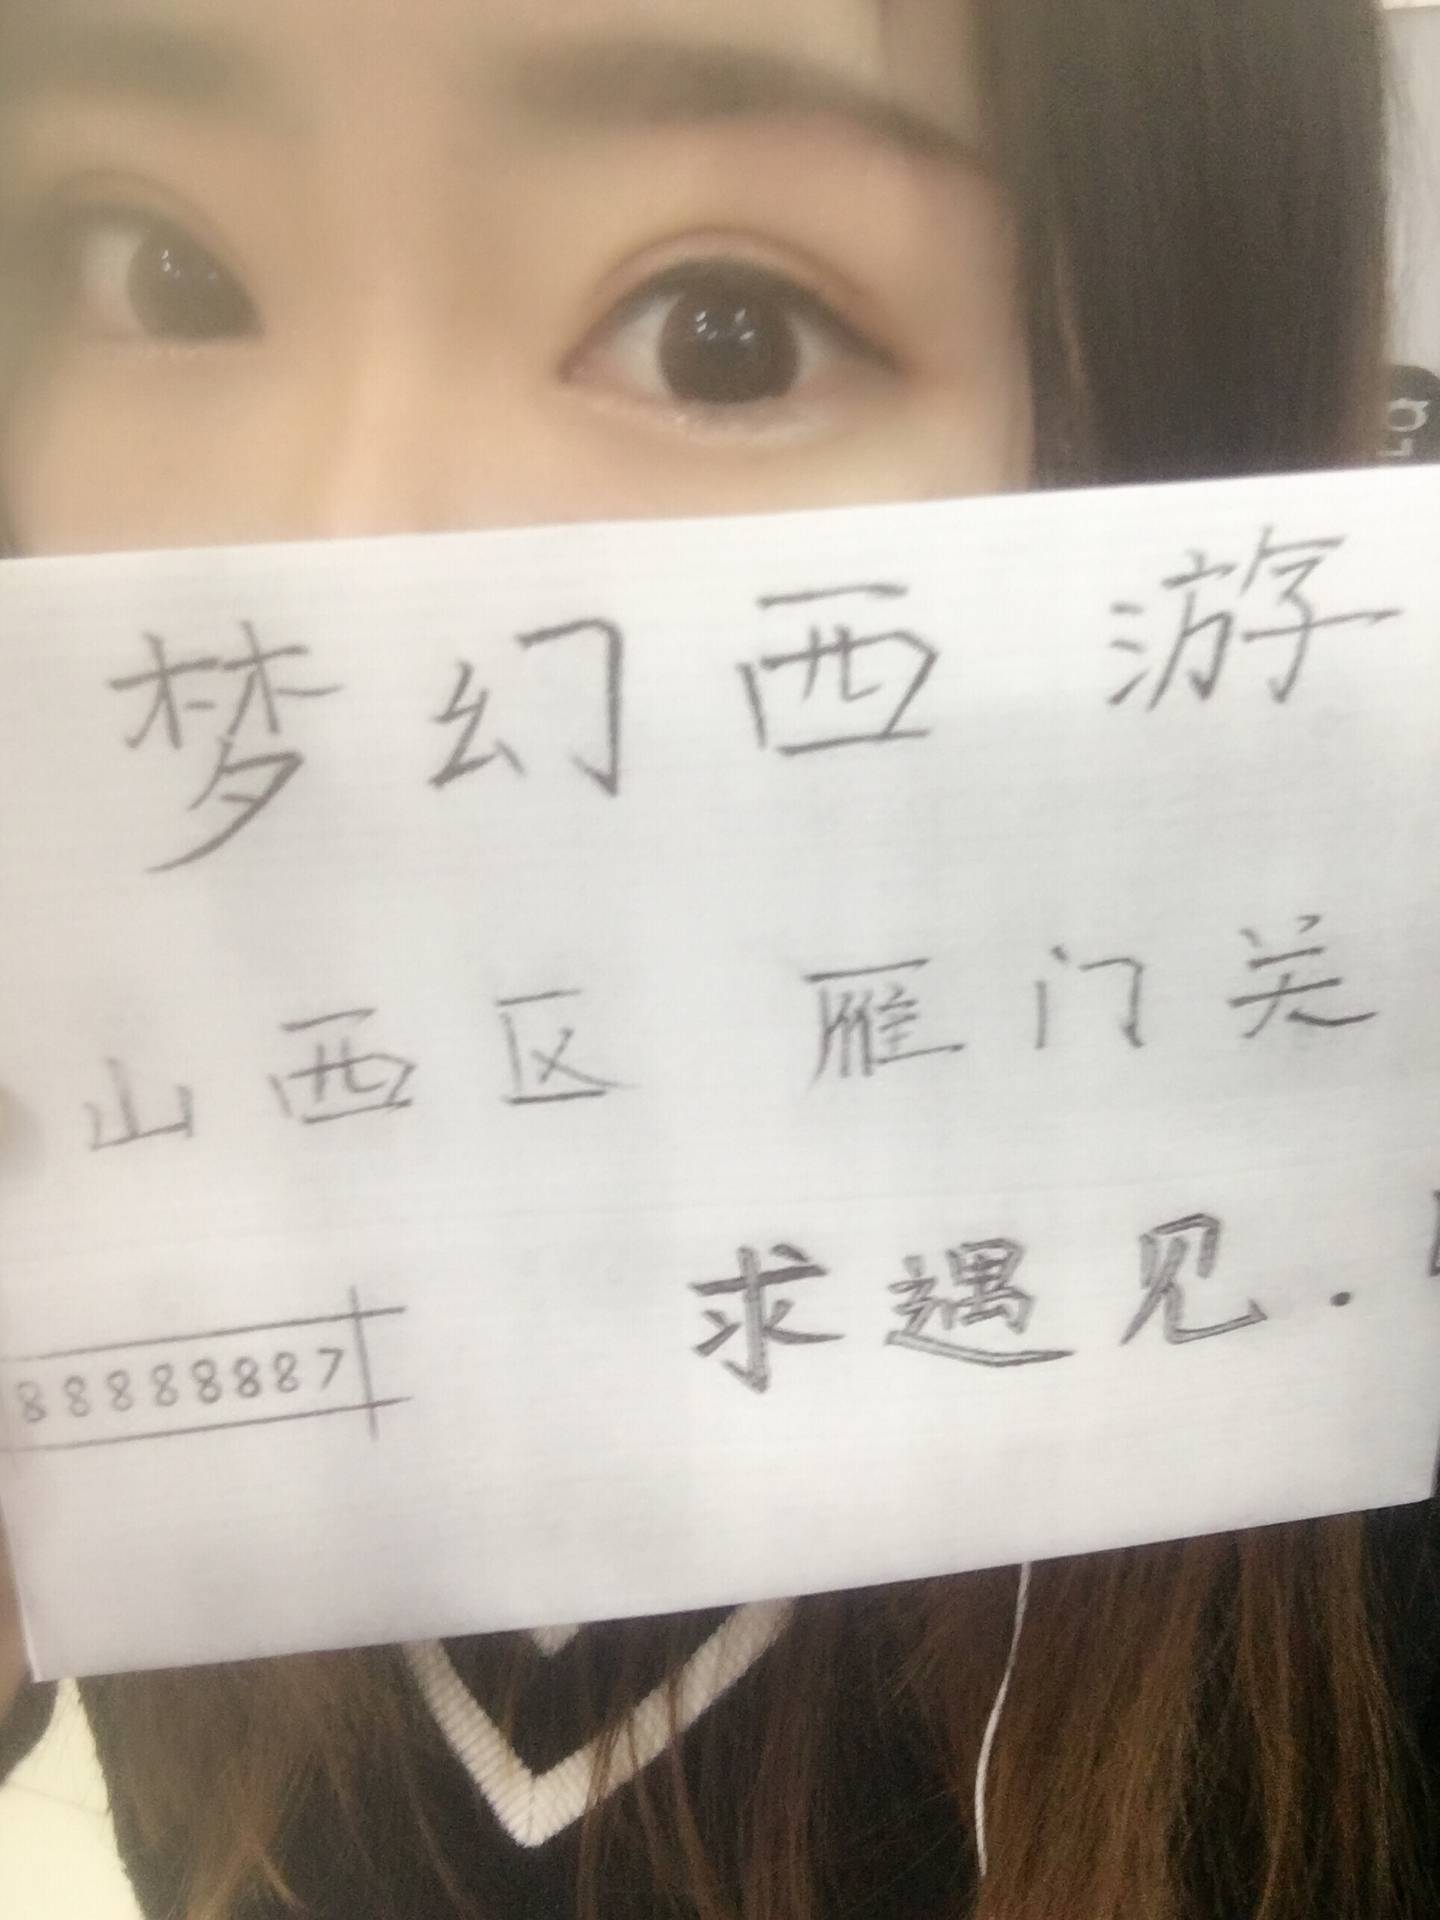 梦幻西游
山西区 雁门关
求遇见.
88888887